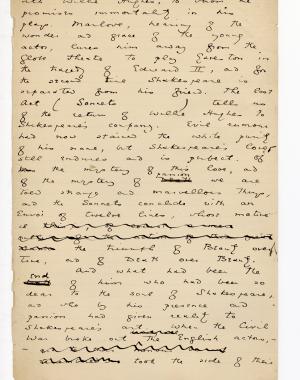 old Willie Hughes to whom he
promises immortality in his
plays. Marlowe, hearing of the
wonder and grace of the young
actor, lures him away from the
Globe theatre to play Gaveston in
the tragedy of Edward II, and for
the second time Shakespeare is
separated from his friend. The last
Act (Sonnets ) tells us
of the return of Willie Hughes to
Shakespeare's company. Evil rumour
had now stained the white purity
of his name, but Shakespeare's love
still endures and is perfect. Of
the mystery of this love, and
of the mystery of passion we are
told strange and marvellous things
and the Sonnets conclude with an
Envoi of twelve lines, whose motive
is
the triumph of Beauty over
Time, and of Death over Beauty.
And what had been the
end of him who had been so
dear to the soul of Shakespeare,
and who by his presence and
passion had given reality to
Shakespeare's art. When the Civil
War broke out the English actors,
took the side of their